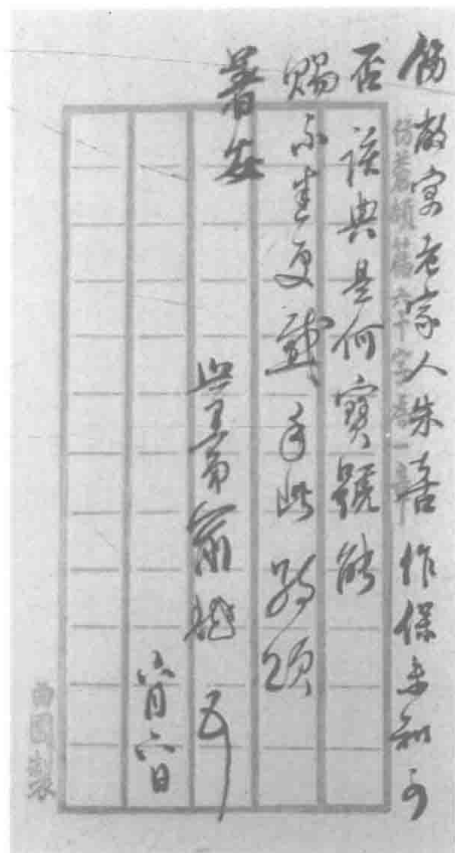 飭敝寓老家人朱喜作保未知可
否該典是何寶號能
賜示遵更感手此敬頌
著安
弟
六月六日
仿蒼頡篇六十字為一章
曲園製